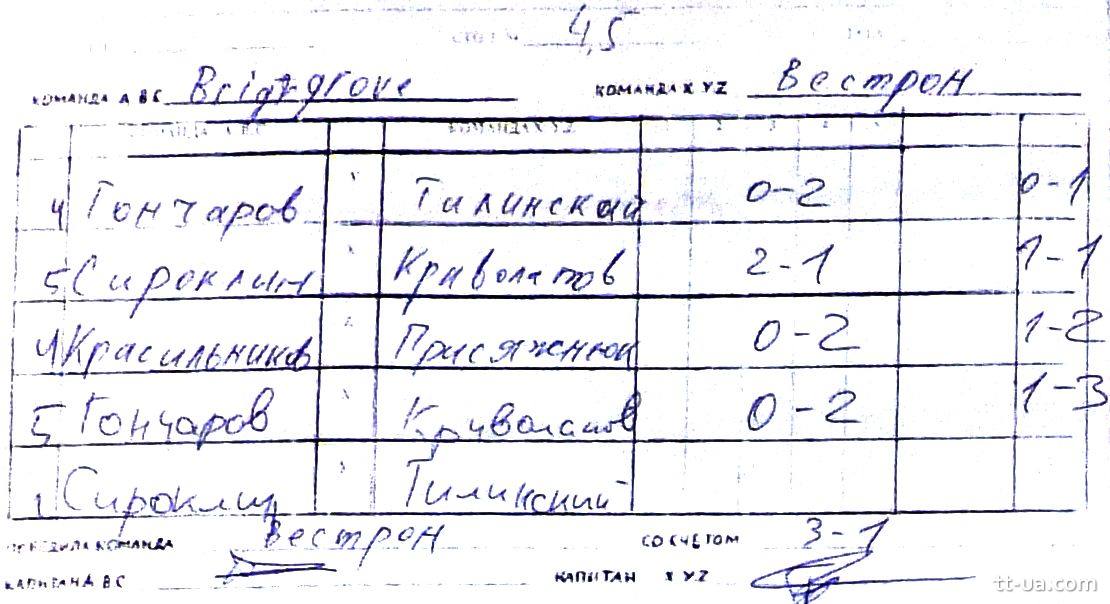 4,5
КОМАНДА А В С Bridggrove КОМАНДА X Y Z Вестрон
КОМАНДА А В С КОМАНДА X Y Z 2 3 4
4 Гончаров Тилинский 0-2 0-1
5 Сироклин Криволапов 2-1 1-1
4 Красильников Присяжнюк 0-2 1-2
5 Гончаров Криволапов 0-2 1-3
1 Сироклин Тилинский
ПОБЕДИЛА КОМАНДА Вестрон СО СЧЕТОМ 3-1
КАПИТАН А В С КАПИТАН X Y Z
tt-ua.com